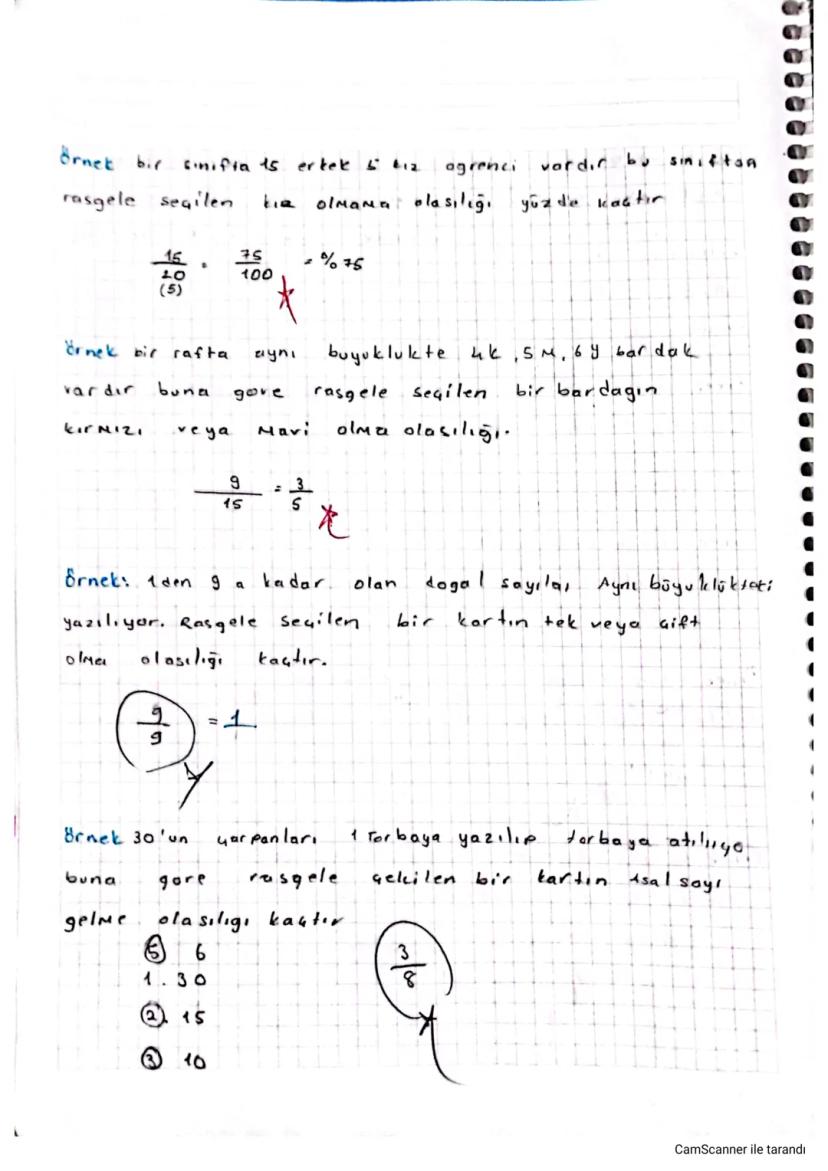 Örnek bir sınıfta 15 erkek 5 kız ogrenci vardır bu sınıftan
rasgele seçilen kız olmama olasılığı yüzde kaçtır
15/20 = 75/100 = %75
(5)
Örnek bir rafta aynı buyuklukte 4k, 5M, 6y bardak
vardır buna gore rasgele seçilen bir bardagın
kırmızı veya Mavi olma olasılığı.
9/15 = 3/5
Örnek: 1den 9 a kadar olan dogal Aynı
yazılıyor. Rasgele seçilen bir kartın tek veya çift
olma olasılığı kaçtır.
9/9 = 1
Örnek 30'un çarpanları 1 Torbaya yazılıp torbaya
buna gore rasgele çekilen bir kartın asal sayı
gelme olasılıgı kaçtır
5 6
1.30
2. 15
3 10
3/8
CamScanner ile tarandı